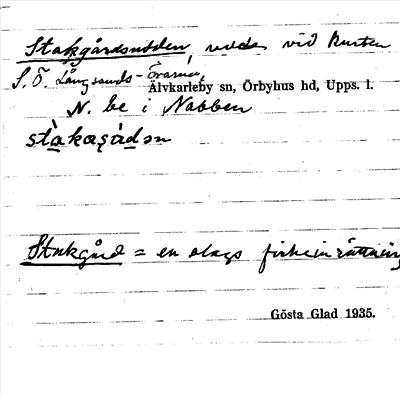 Stakgårdsudden, udde vid kusten
S.Ö. Långsands-Örarna,
Älvkarleby sn, Örbyhus hd, Upps. l.
N. be i Nabben
Stakgård = en slags fiskeinrättning
Gösta Glad 1935.